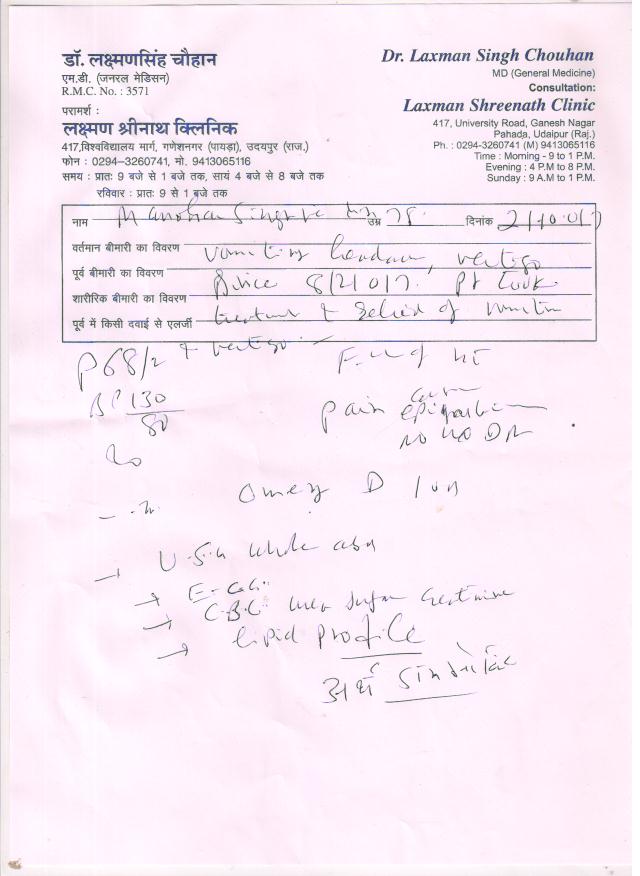 डॉ. लक्ष्मणसिंह चौहान
एम.डी. (जनरल मेडिसन)
R.M.C. No. : 3571
परामर्श :
लक्ष्मण श्रीनाथ क्लिनिक
417,विश्वविद्यालय मार्ग, गणेशनगर (पायड़ा), उदयपुर (राज.)
फोन : 0294–3260741, मो. 9413065116
समय : प्रातः 9 बजे से 1 बजे तक, सायं 4 बजे से 8 बजे तक
रविवार : प्रातः 9 से 1 बजे तक
Dr. Laxman Singh Chouhan
MD (General Medicine)
Consultation:
Laxman Shreenath Clinic
417, University Road, Ganesh Nagar
Pahada, Udaipur (Raj.)
Ph. : 0294-3260741 (M) 9413065116
Time : Morning - 9 to 1 P.M.
Evening : 4 P.M to 8 P.M.
Sunday : 9 A.M to 1 P.M.
नाम Manohar Singh उम्र 78 दिनांक 2/10/017
वर्तमान बीमारी का विवरण vomiting vertigo
पूर्व बीमारी का विवरण Since 8/2/017. Pt took
शारीरिक बीमारी का विवरण
पूर्व में किसी दवाई से एलर्जी treatment & relief of
& vertigo
P 68/2
BP 130/80
Pain
epigastrium
no H/O DM
Omez D
U.S.G whole abd
E.C.G.
C.B.C. urea sugar creatinine
lipid profile